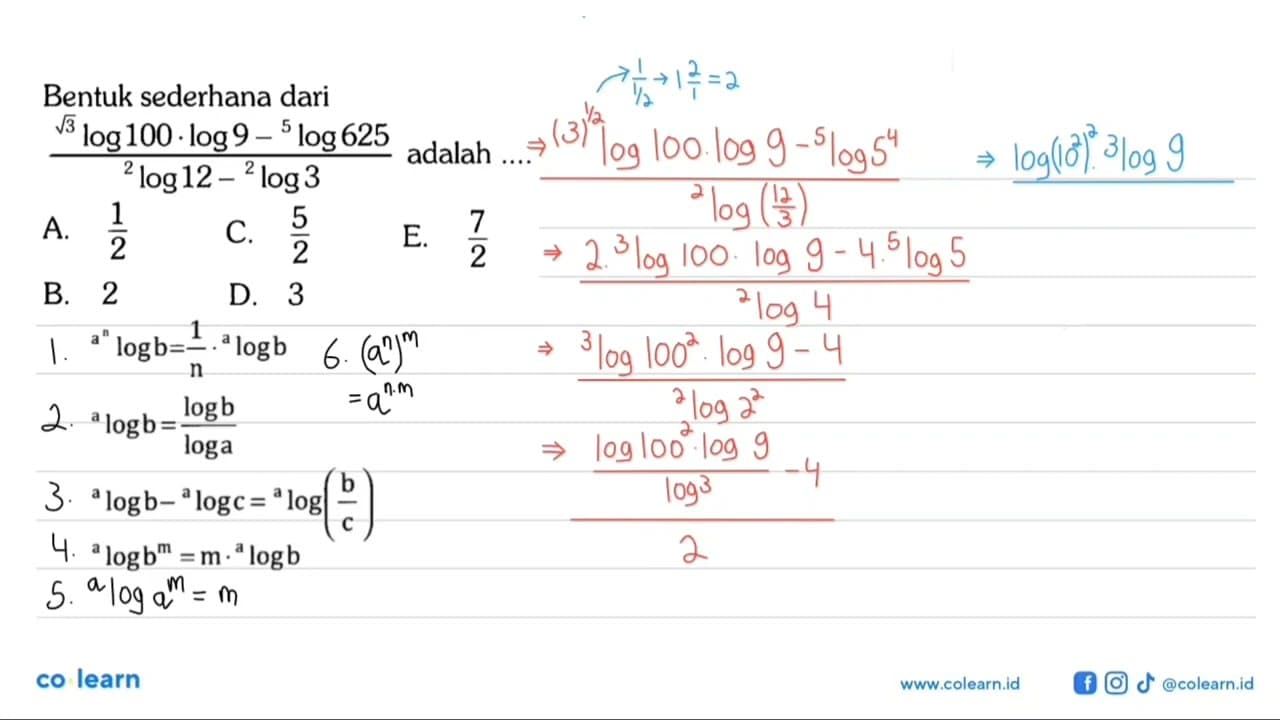 Bentuk sederhana dari
√3 log 100 · log 9 – ⁵log 625
²log 12 – ²log 3
adalah ....
A. 1/2
C. 5/2
E. 7/2
B. 2
D. 3
1. aⁿ log b = 1/n · ᵃlog b
2. ᵃlog b = log b / log a
3. ᵃlog b – ᵃlog c = ᵃlog (b/c)
4. ᵃlog bᵐ = m · ᵃlog b
5. ᵃlog aᵐ = m
6. (aⁿ)ᵐ
= aⁿ·ᵐ
→ 1/½ → 1 2/1 = 2
⇒ (3)^½ log 100 . log 9 – ⁵log 5⁴
²log (12/3)
⇒ 2.³log 100 . log 9 – 4.⁵log 5
²log 4
⇒ ³log 100² . log 9 – 4
²log 2²
⇒ log 100² . log 9
log 3
– 4
2
⇒ log (10²)² . ³log 9
co learn
www.colearn.id
@colearn.id